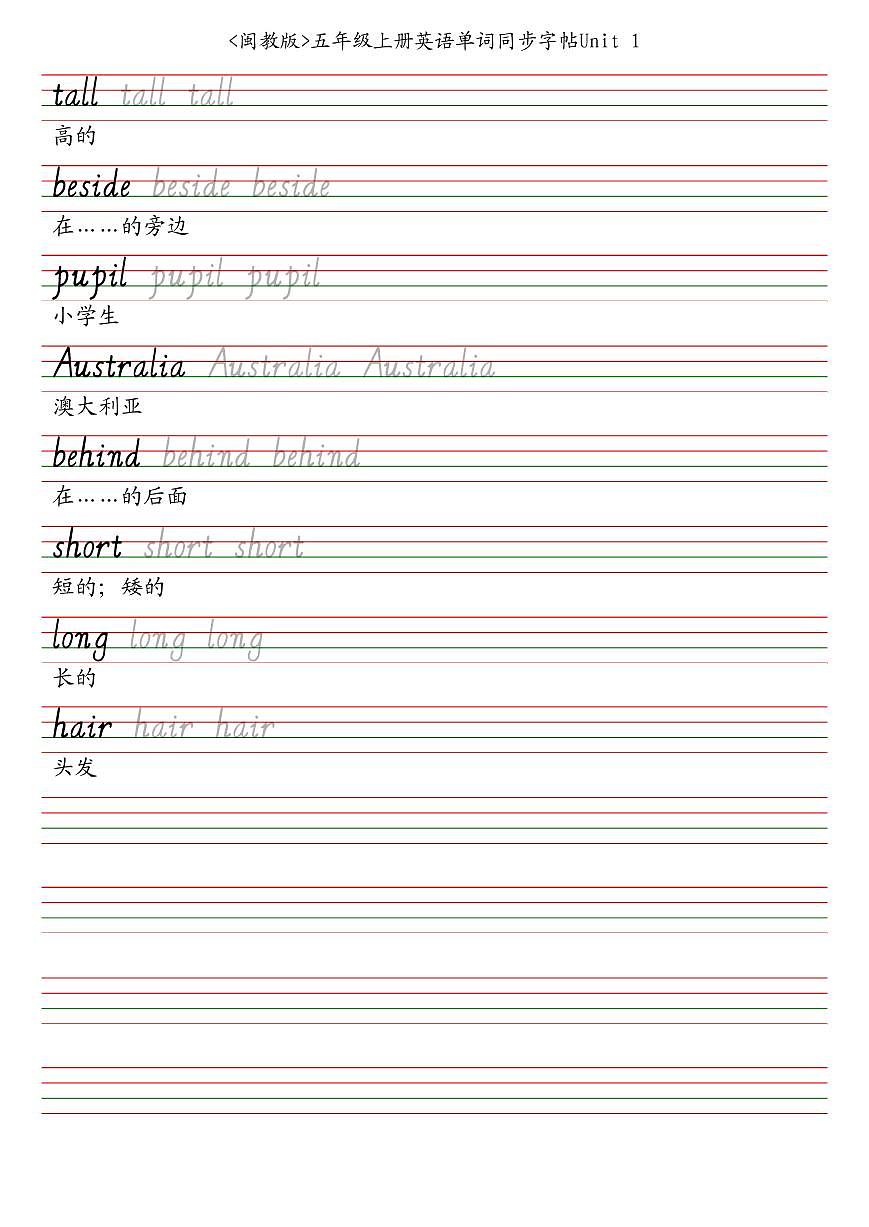 <闽教版>五年级上册英语单词同步字帖Unit 1
tall tall tall
高的
beside beside beside
在……的旁边
pupil pupil pupil
小学生
Australia Australia Australia
澳大利亚
behind behind behind
在……的后面
short short short
短的；矮的
long long long
长的
hair hair hair
头发